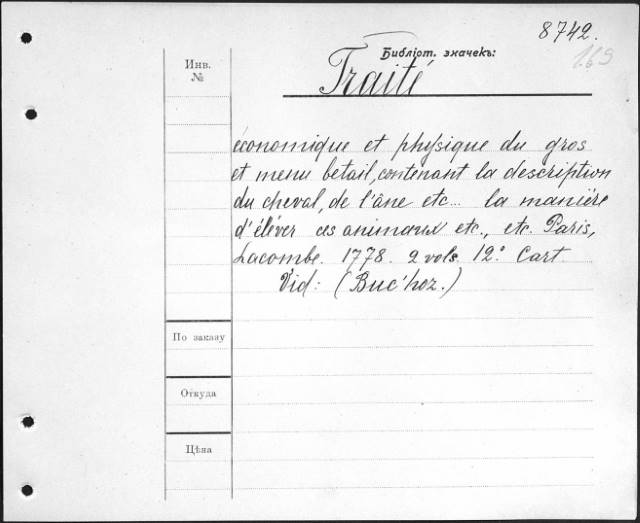 8742.
Библіот. значекъ:
169
Инв.
№
Traité
économique et physique du gros
et menu betail, contenant la description
du cheval, de l'âne etc... la manière
d'éléver ces animaux etc., etc. Paris,
Lacombe. 1778. 2 vols. 12.° Cart.
Vid: (Buc'hoz.)
По заказу
Откуда
Цѣна